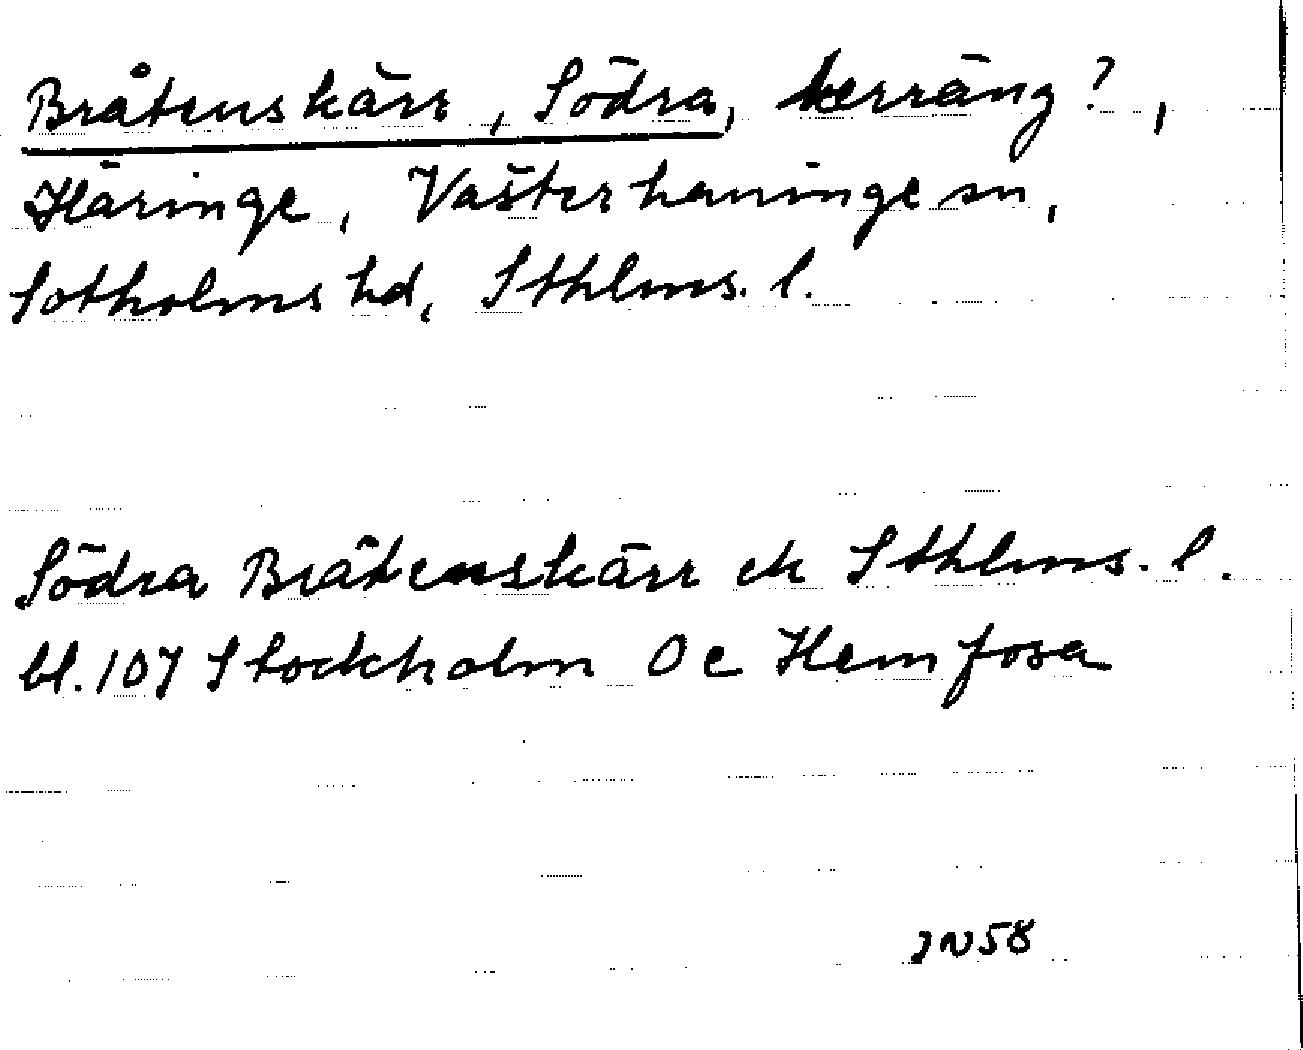 Bråtenskärr, Södra, terräng?,
Häringe, Västerhaninge sn,
Sotholms hd, Sthlms. l.
Södra Bråtenskärr ek Sthlms. l.
bl. 107 Stockholm Oc Hemfosa
JN58